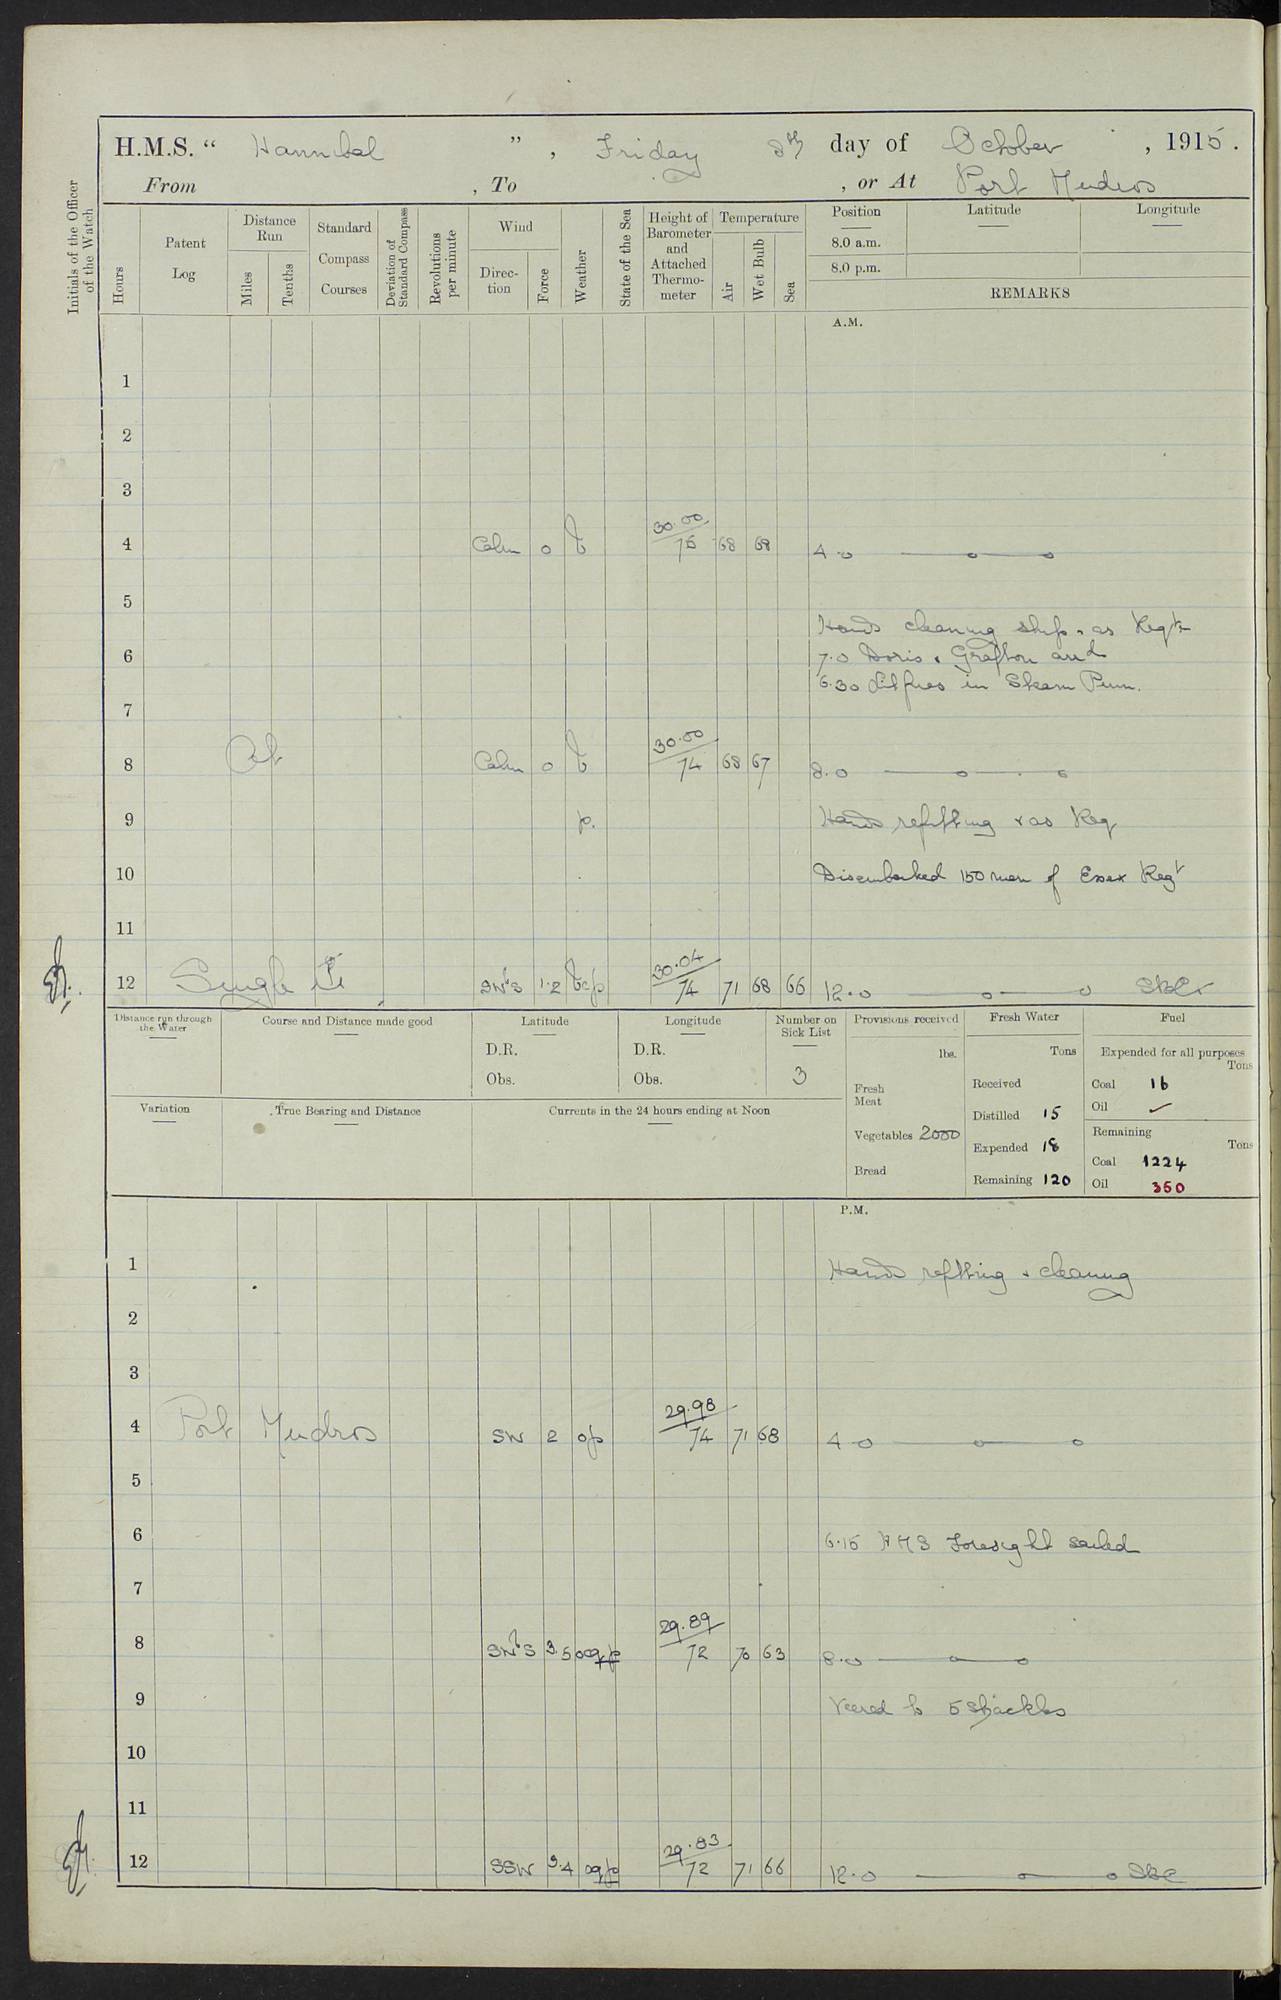 H.M.S. “ Hannibal ” , Friday 8th day of October , 1915 .
From , To , or At Port Mudros
Initials of the Officer of the Watch
Hours
Patent Log
Distance Run
Miles
Tenths
Standard Compass Courses
Deviation of Standard Compass
Revolutions per minute
Wind
Direc-tion
Force
Weather
State of the Sea
Height of Barometer and Attached Thermo-meter
Temperature
Air
Wet Bulb
Sea
Position
8.0 a.m.
8.0 p.m.
Latitude
Longitude
REMARKS
A.M.
1
2
3
4 Calm 0 b 30.00 75 68 68 4.0
5
Hands cleaning ship & as Reqte
6 7.0 Doris & Grafton and
6.30 Lit fires in Steam Pinn.
7
8 At Calm 0 b 30.00 74 68 67 8.0
9 p. Hands refitting & as Req
10 Disembarked 150 men of Essex Regt
11
12 Single SWbS 1.2 bcp 30.04 74 71 68 66 12.0
Distance run through the Water
Course and Distance made good
Latitude
D.R.
Obs.
Longitude
D.R.
Obs.
Number on Sick List
3
Provisions received
lbs.
Fresh Meat
Vegetables 2000
Bread
Fresh Water
Tons
Received
Distilled 15
Expended 18
Remaining 120
Fuel
Expended for all purposes
Tons
Coal 16
Oil ✓
Remaining
Tons
Coal 1224
Oil 350
Variation
True Bearing and Distance
Currents in the 24 hours ending at Noon
P.M.
1 Hands refitting & cleaning
2
3
4 Port Mudros SW 2 op 29.98 74 71 68 4.0
5
6 6.15 HMS Foresight sailed
7
8 SWbS 3.5 oqp 29.89 72 70 63 8.0
9 Veered to 5 shackles
10
11
12 SSW 3.4 oqp 29.83 72 71 66 12.0